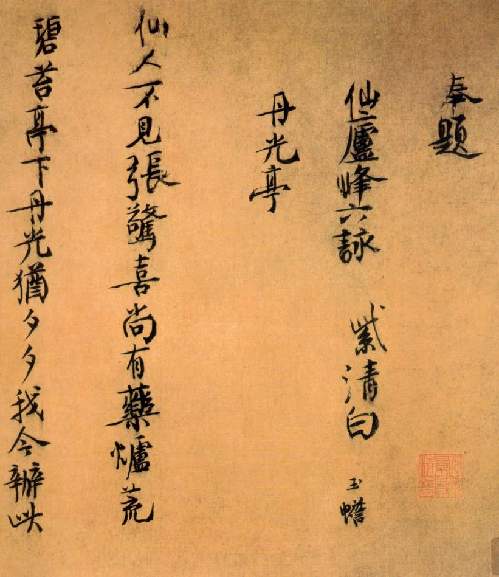 奉題
仙廬峰六詠 紫清白玉蟾
丹光亭
仙人不見張驚喜尚有藥爐荒
碧苔亭下丹光猶夕夕我今辦此